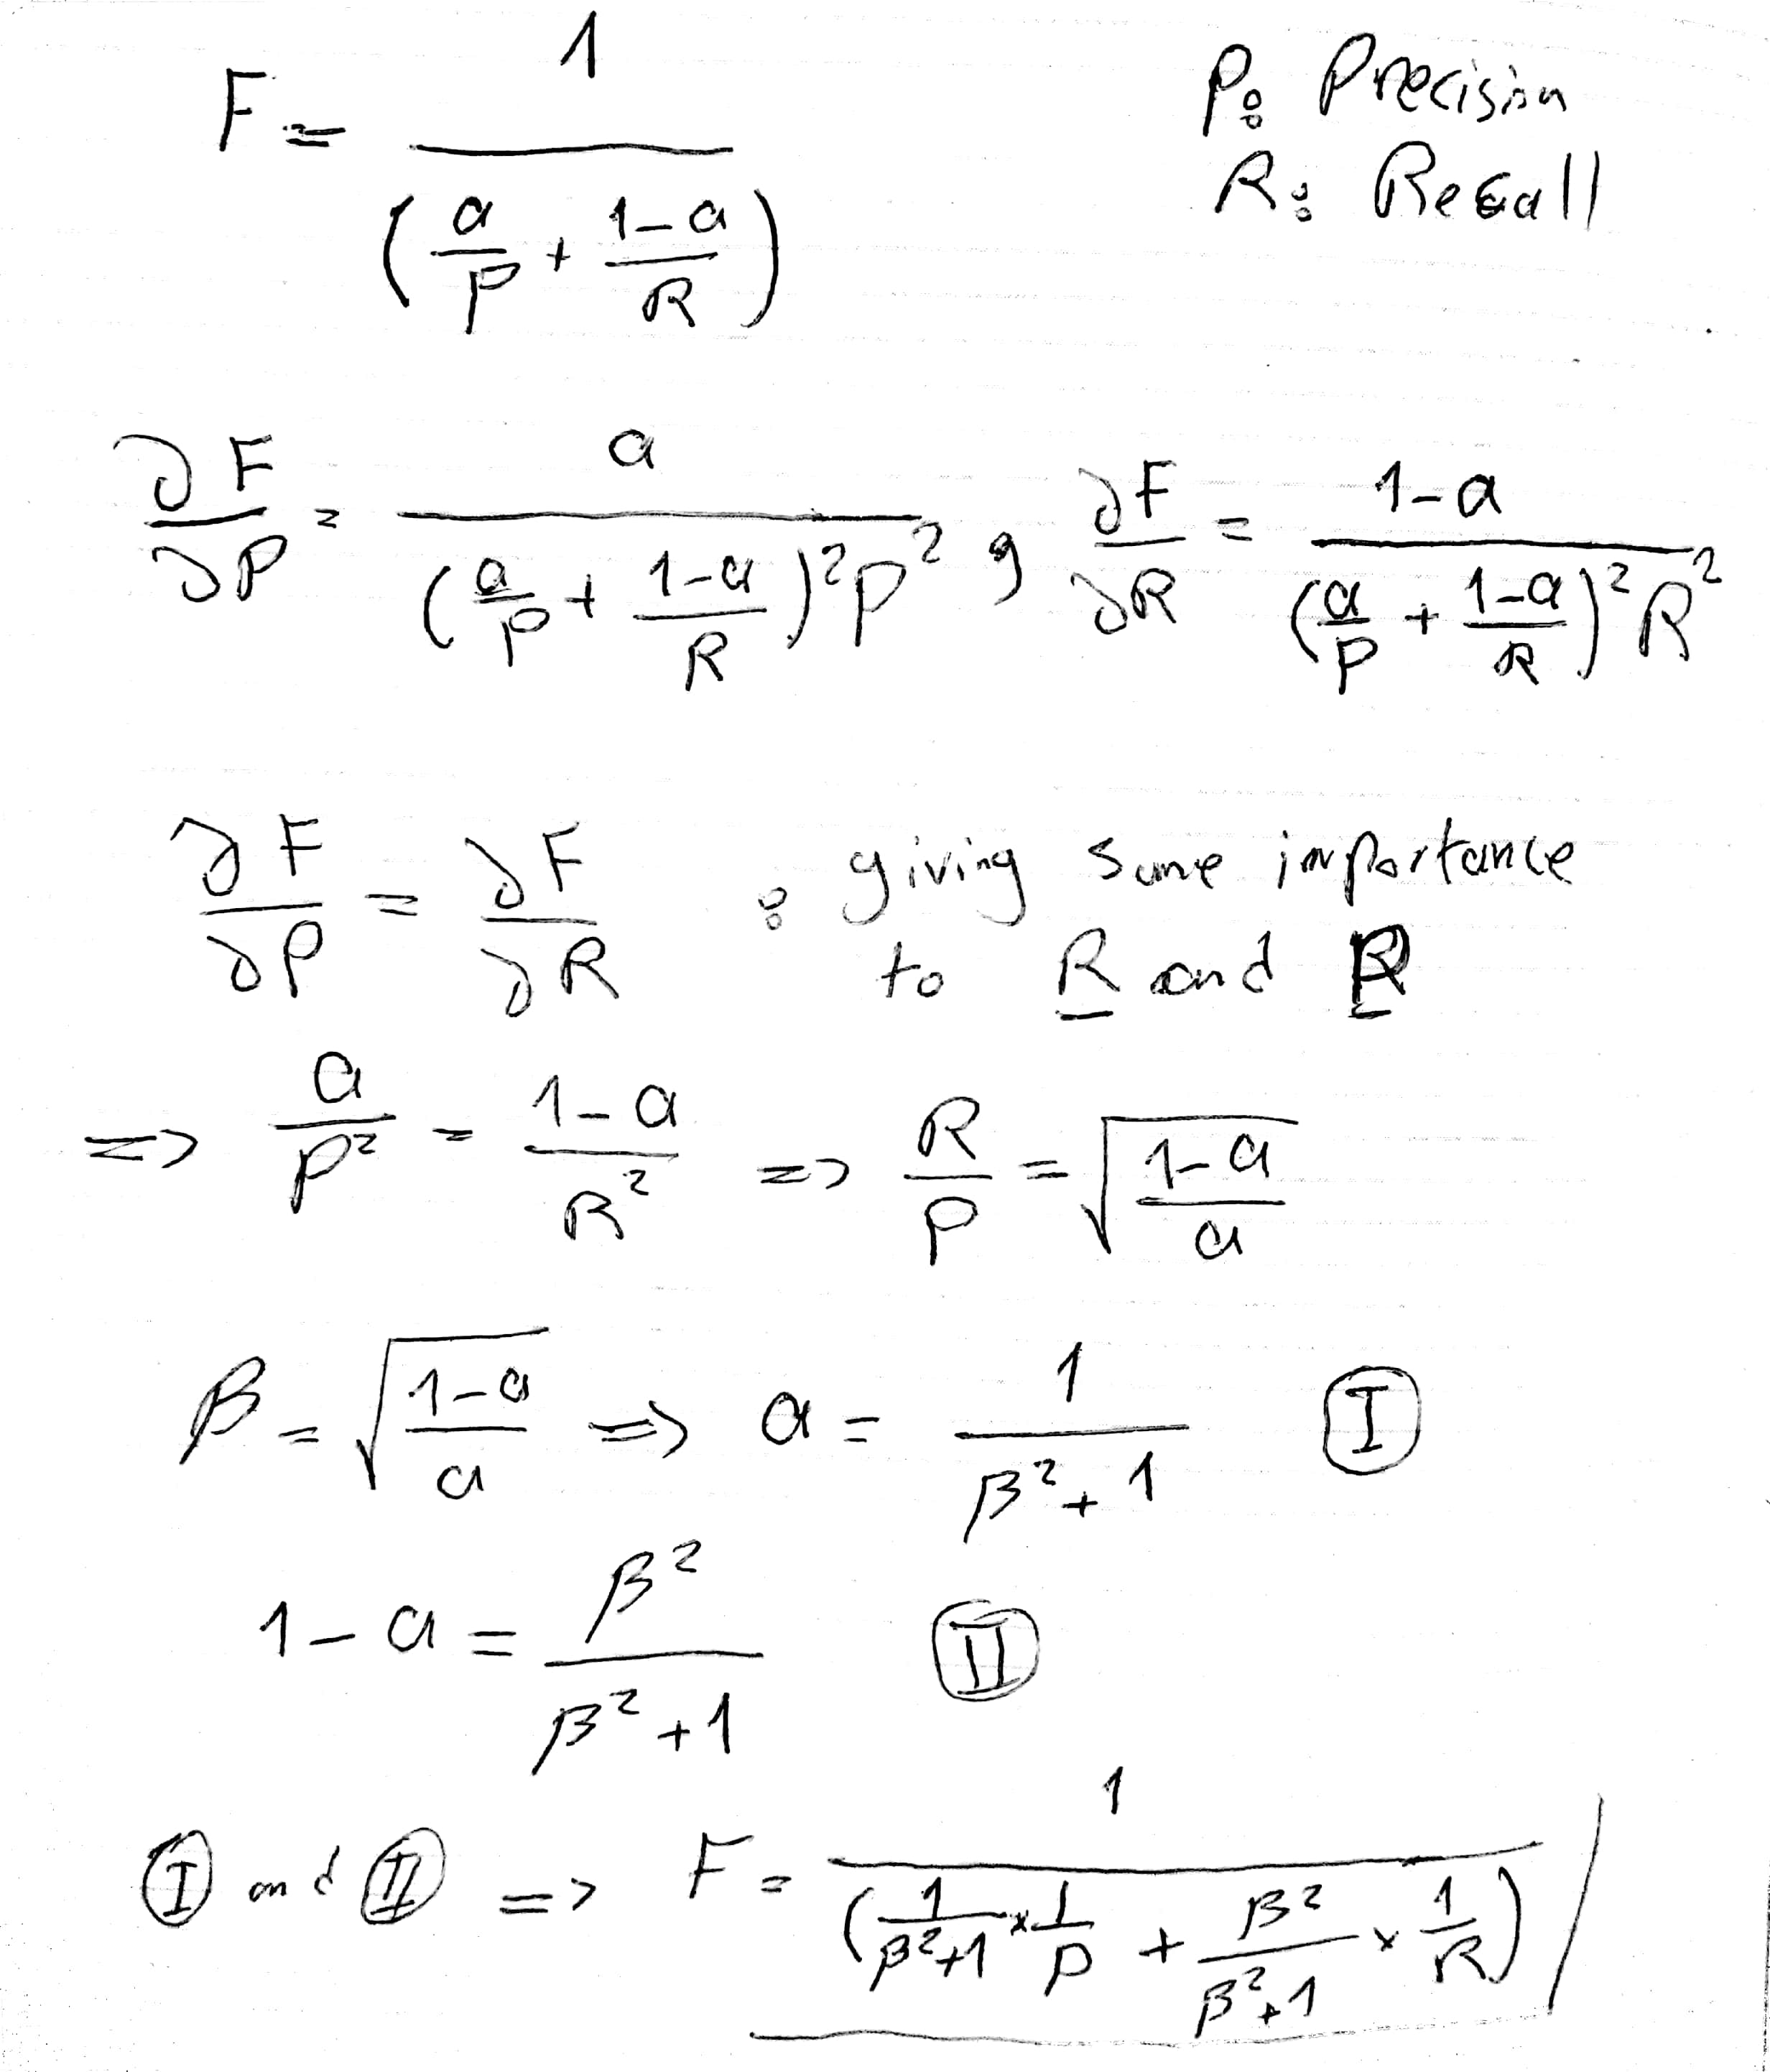 F = 1 / (a/P + (1-a)/R)
P: Precision
R: Recall
∂F/∂P = a / ((a/P + (1-a)/R)² P²) , ∂F/∂R = (1-a) / ((a/P + (1-a)/R)² R²)
∂F/∂P = ∂F/∂R : giving same importance
to R and P
=> a/P² = (1-a)/R² => R/P = √((1-a)/a)
β = √((1-a)/a) => a = 1/(β²+1) Ⓘ
1-a = β²/(β²+1) ⓘⓘ
Ⓘ and ⓘⓘ => F = 1 / (1/(β²+1) × 1/P + β²/(β²+1) × 1/R)